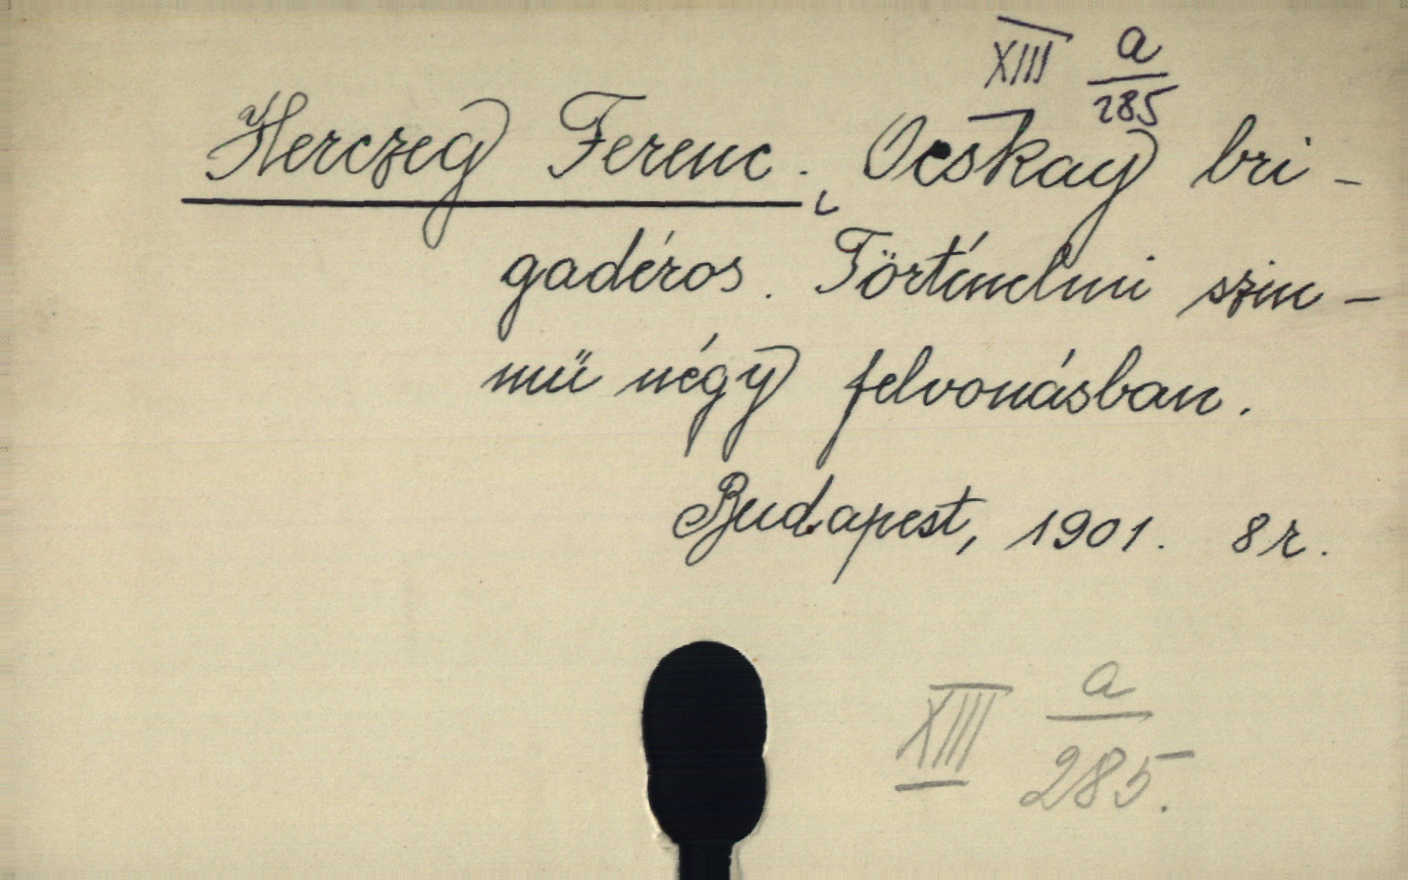 XIII a/285
Herczeg Ferenc. Ocskay bri-
gadéros. Történelmi szin-
mű négy felvonásban.
Budapest, 1901. 8 r.
XIII a/285.